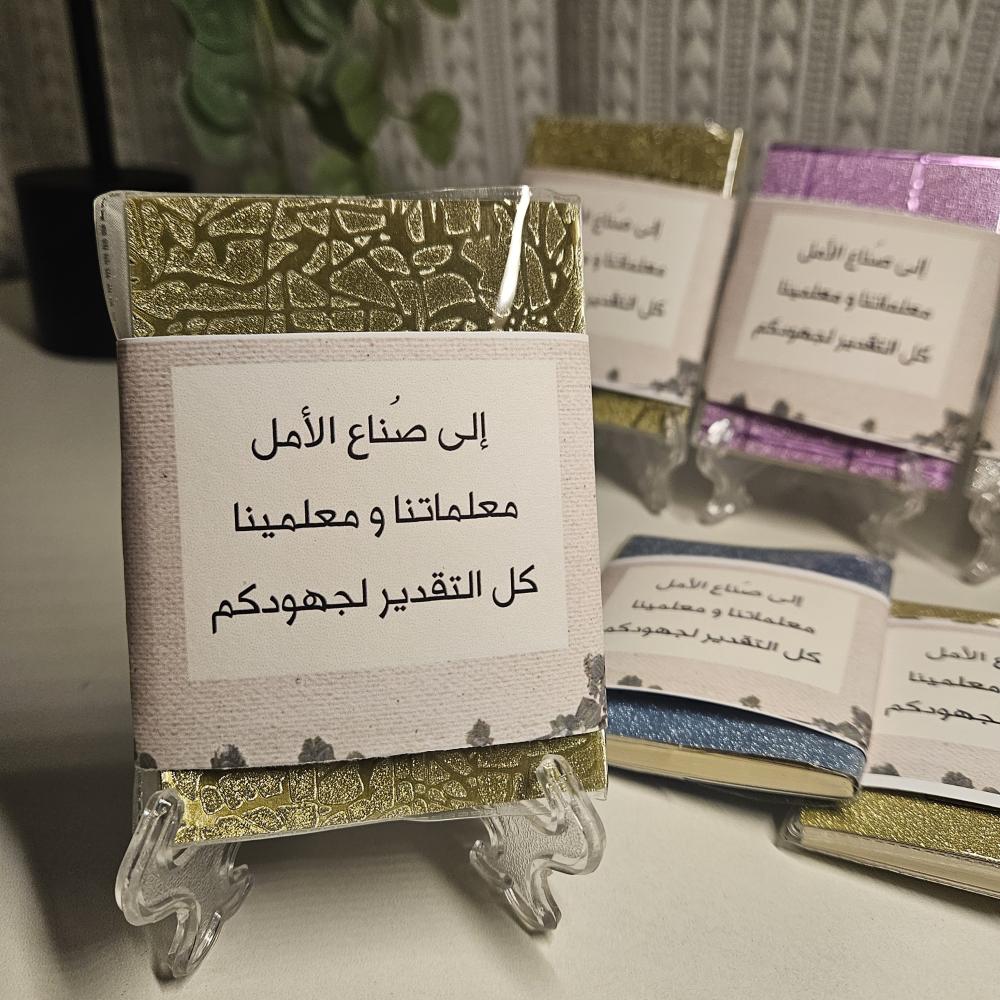 إلى صُناع الأمل
معلماتنا و معلمينا
كل التقدير لجهودكم
إلى صُناع الأمل
معلماتنا و
كل التقدير
إلى صُناع الأمل
معلماتنا و معلمينا
كل التقدير لجهودكم
إلى صُناع الأمل
معلماتنا و معلمينا
كل التقدير لجهودكم
إلى صُناع الأمل
معلمينا
لجهودكم